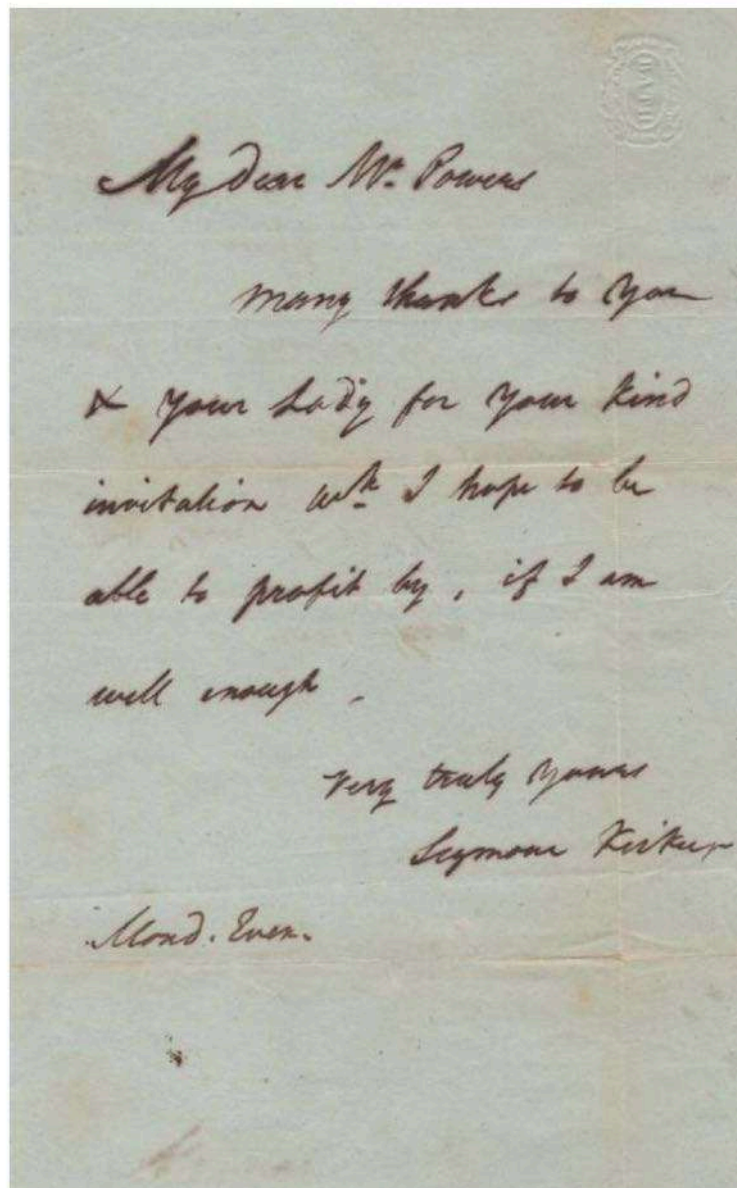 BATH
My Dear Mr. Powers
many thanks to you
& your Lady for your kind
invitation wh. I hope to be
able to profit by, if I am
well enough.
Very truly yours
Seymour Kirkup
Mond. Even.